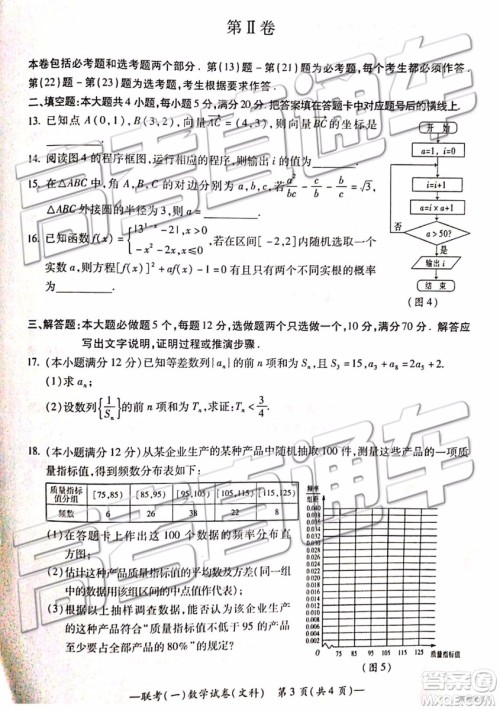 第Ⅱ卷
本卷包括必考题和选考题两个部分. 第(13)题～第(21)题为必考题, 每个考生都必须作答.
第(22)题～第(23)题为选考题, 考生根据要求作答.
二、填空题: 本大题共4小题, 每小题5分, 满分20分. 把答案填在答题卡中对应题号后的横线上.
13. 已知点A(0,1), B(3,2), 向量AC=(4,3), 则向量BC的坐标为
14. 阅读图4的程序框图, 运行相应的程序, 则输出i的值为
15. 在△ABC中, 角A,B,C的对边分别为a,b,c, 若
△ABC外接圆的半径为3, 则a=
16. 已知函数f(x)= 若在区间[-2,2]内随机选取一个
实数a, 则方程[f(x)]²-af(x)=0有且仅有两个不同实根的概率为
开始
a=1, i=0
i=i+1
a=i×a+1
a>50?
否
是
输出i
结束
(图4)
三、解答题: 本大题必做题5个, 每题12分, 选做题两个只选做一个, 10分, 满分70分. 解答应
写出文字说明, 证明过程或推演步骤.
17. (本小题满分12分)已知等差数列{aₙ}的前n项和为Sₙ, 且S₃=15, a₃+a₈=2a₅+2.
(1)求aₙ;
(2)设数列{1/Sₙ}的前n项和为Tₙ, 求证: Tₙ<3/4.
18. (本小题满分12分)从某企业生产的某种产品中随机抽取100件, 测量这些产品的一项质
量指标值, 得到频数分布表如下:
质量指标值分组 [75,85) [85,95) [95,105) [105,115) [115,125)
频数 6 26 38 22 8
(1)在答题卡上作出这些数据的频率分布直
方图;
(2)估计这种产品质量指标值的平均数及方差(同一组中的
数据用该组区间的中点值作代表);
(3)根据以上抽样调查数据, 能否认为该企业生产的这种
产品符合“质量指标值不低于95的产品至少要占全部
产品的80%”的规定?
频率
组距
0.040
0.038
0.036
0.034
0.032
0.030
0.028
0.026
0.024
0.022
0.020
0.018
0.016
0.014
0.012
0.010
0.008
0.006
0.004
0.002
75 85 95 105 115 125
质量指标值
(图5)
—联考(一)数学试卷(文科) 第3页(共4页)—
高考直通车
高考直通车